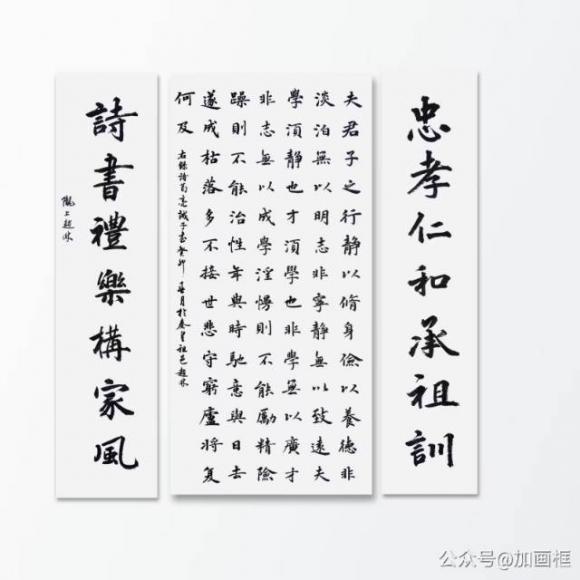 忠孝仁和承祖訓
夫君子之行静以脩身儉以養德非
淡泊無以明志非寧静無以致遠夫
學須静也才須學也非學無以廣才
非志無以成學淫慢則不能勵精險
躁則不能治性年與時馳意與日去
遂成枯落多不接世悲守窮廬將复
何及
右錄諸葛亮誡子書癸卯月於秦皇祖邑趙林
詩書禮樂構家風
隴上趙林
公众号@加画框